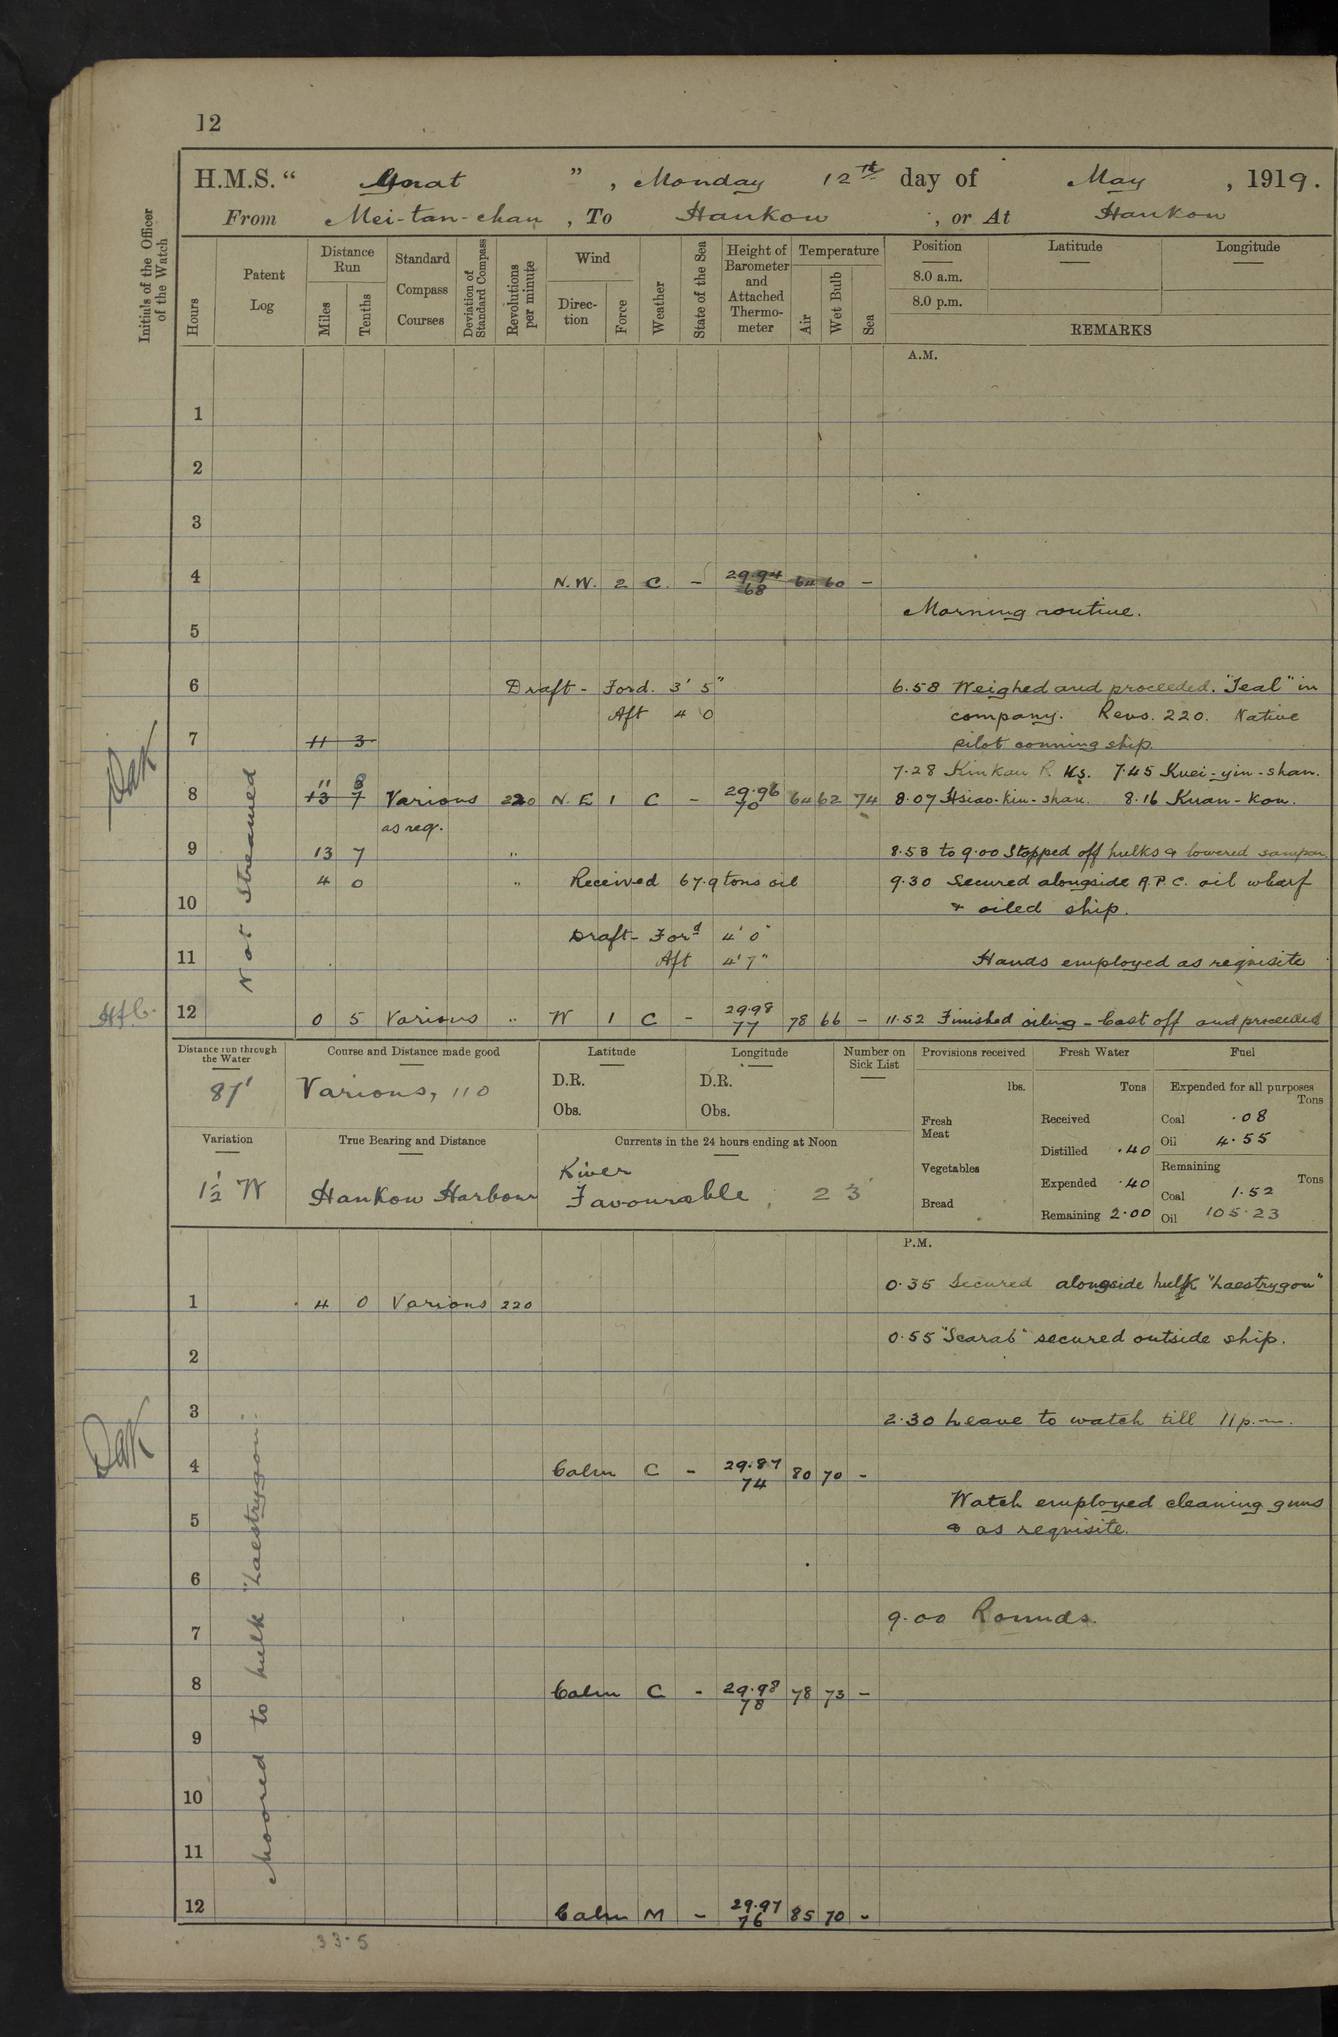 12
H.M.S. " Gnat ", Monday 12th day of May, 1919.
From Mei-tan-chau, To Hankow, or At Hankow
Initials of the Officer of the Watch
Hours
Patent Log
Distance Run
Miles
Tenths
Standard Compass Courses
Deviation of Standard Compass
Revolutions per minute
Wind
Direction
Force
Weather
State of the Sea
Height of Barometer and Attached Thermometer
Temperature
Air
Wet Bulb
Sea
Position
Latitude
Longitude
8.0 a.m.
8.0 p.m.
REMARKS
A.M.
1
2
3
4 N.W. 2 C - 29.94 68 64 60 -
Morning routine.
5
6 Draft - Ford. 3' 5" 6.58 Weighed and proceeded. "Teal" in
Aft 4 0 company. Revs. 220. Native
7 11 3 pilot conning ship.
7.28 Kinkau R Ks. 7.45 Kuei-yin-shan.
11 3
8 13 7 Various 220 N.E 1 C - 29.96 70 64 62 74 8.07 Hsiao-kin-shan. 8.16 Kuan-kou.
as req.
9 13 7 " 8.53 to 9.00 Stopped off hulks & lowered sampan
4 0 " Received 67.9 tons oil 9.30 Secured alongside A.P.C. oil wharf
10 & oiled ship.
Draft - Ford 4' 0"
11 Aft 4' 7" Hands employed as requisite
12 0 5 Various " W 1 C - 29.98 77 78 66 - 11.52 Finished oiling - Cast off and proceeded
Not Streamed
DaK
HfC.
Distance run through the Water
87'
Course and Distance made good
Various, 110
Latitude
D.R.
Obs.
Longitude
D.R.
Obs.
Number on Sick List
Provisions received
lbs.
Fresh Meat
Vegetables
Bread
Fresh Water
Tons
Received
Distilled .40
Expended .40
Remaining 2.00
Fuel
Expended for all purposes
Tons
Coal .08
Oil 4.55
Remaining
Tons
Coal 1.52
Oil 105.23
Variation
1½ W
True Bearing and Distance
Hankow Harbour
Currents in the 24 hours ending at Noon
River
Favourable, 23'
P.M.
0.35 Secured alongside hulk "Laestrygon"
1 4 0 Various 220
0.55 "Scarab" secured outside ship.
2
3 2.30 Leave to watch till 11 p.m.
4 Calm C - 29.87 74 80 70 -
Watch employed cleaning guns
5 & as requisite.
6
9.00 Rounds.
7
8 Calm C - 29.98 78 78 73 -
9
10
11
12 Calm M - 29.97 76 85 70 -
Moored to hulk "Laestrygon".
DaK
33.5